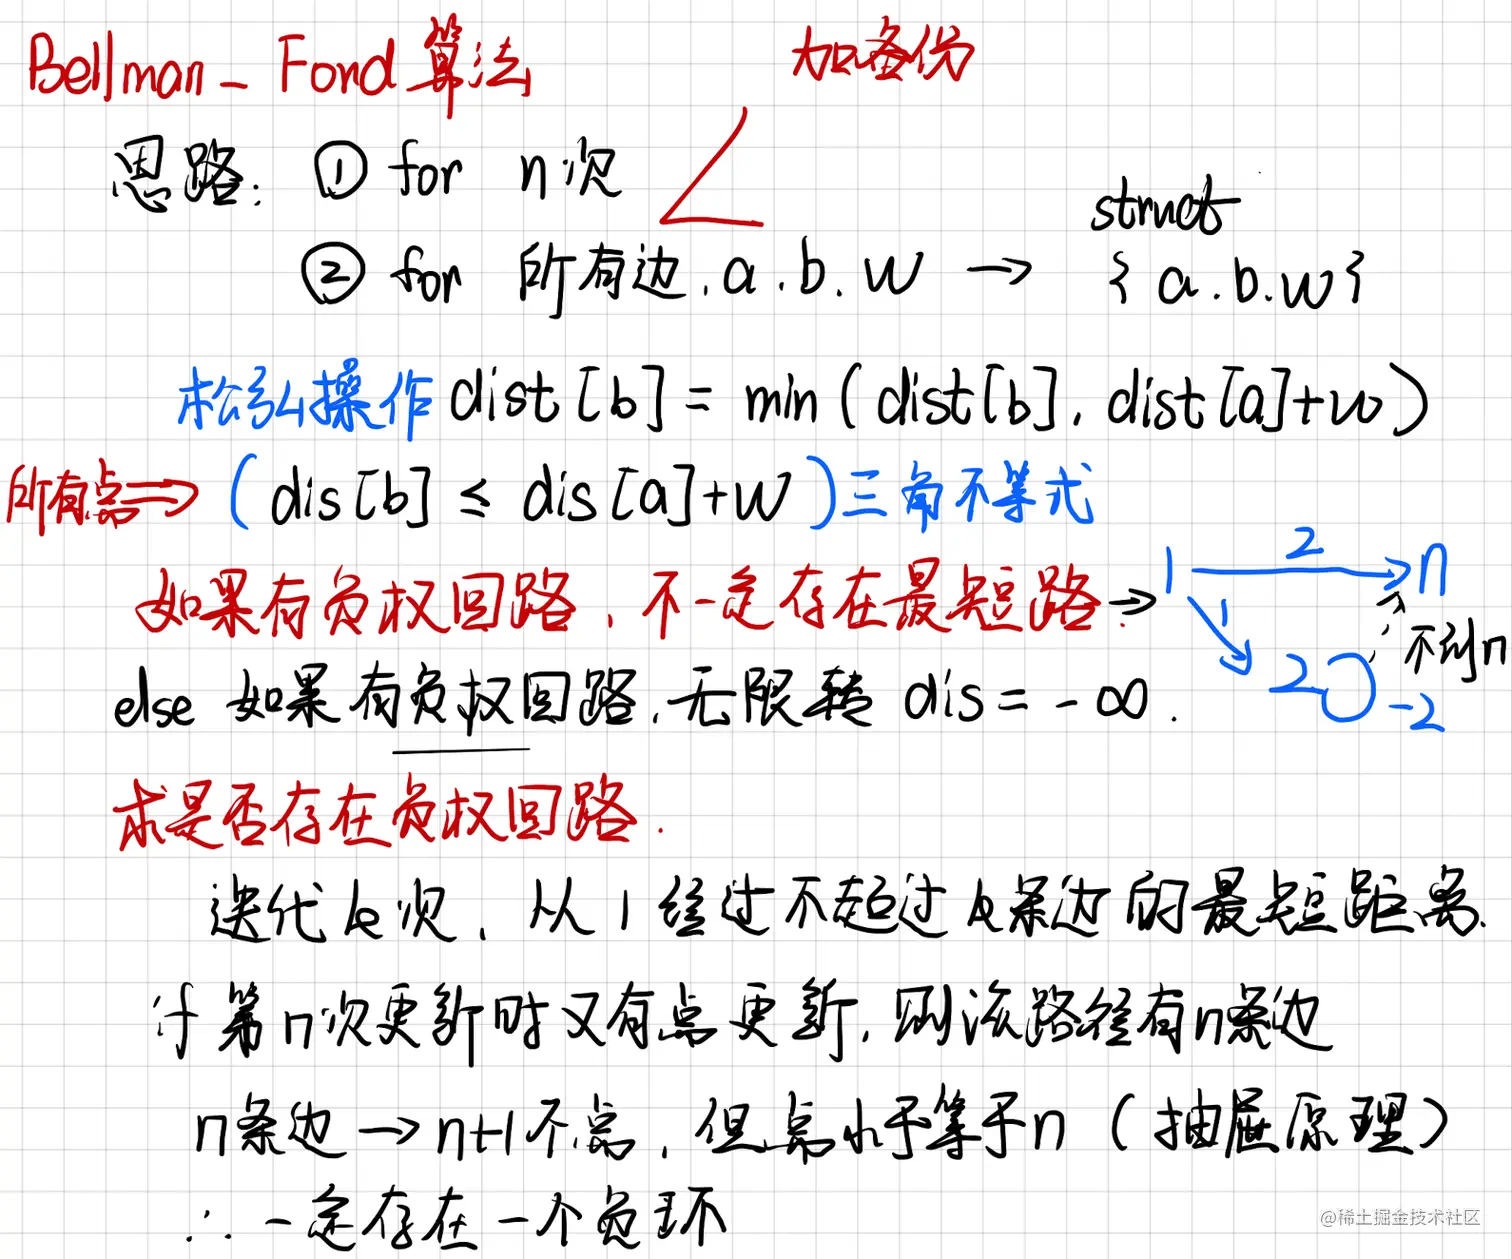 Bellman - Ford 算法
加备份
思路: ① for n次
② for 所有边. a. b. w → struct { a. b. w}
松弘操作 dist [b] = min ( dist[b], dist[a]+w )
所有点⇒ ( dis[b] ≤ dis[a]+w ) 三角不等式
如果有负权回路, 不一定存在最短路→
1 2 n
1
不到n
2 -2
else 如果有负权回路. 无限转 dis = - ∞.
求是否存在负权回路.
迭代k次, 从1经过不超过k条边的最短距离.
计第n次更新时又有点更新, 则该路径有n条边
n条边 → n+1个点, 但点小于等于n (抽屉原理)
∴ 一定存在一个负环
@稀土掘金技术社区